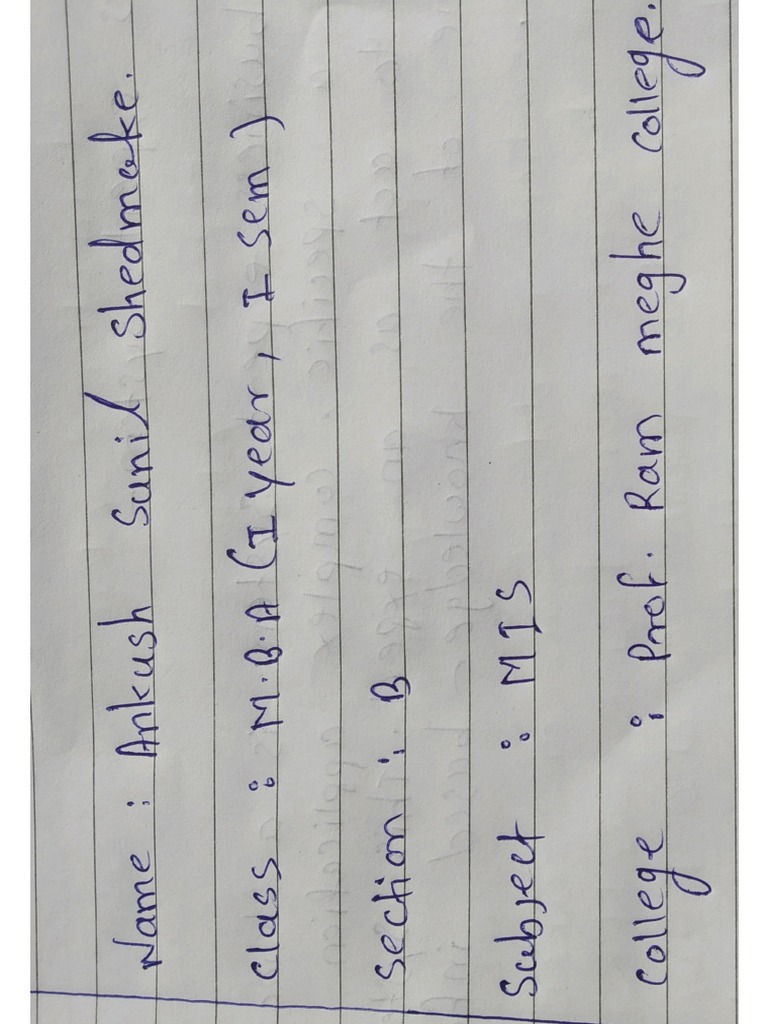 Name : Ankush Sunil Shedmake.
Class : M.B.A (I year, I sem)
Section : B
Subject : MIS
College : Prof. Ram meghe College.